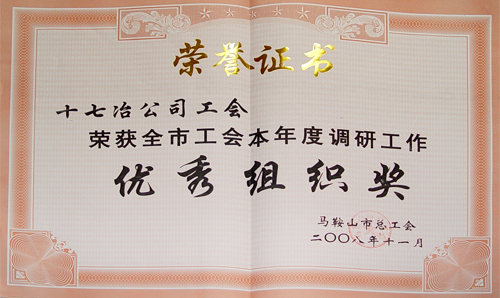 荣誉证书
十七冶公司工会
荣获全市工会本年度调研工作
优秀组织奖
马鞍山市总工会
二〇〇八年十一月